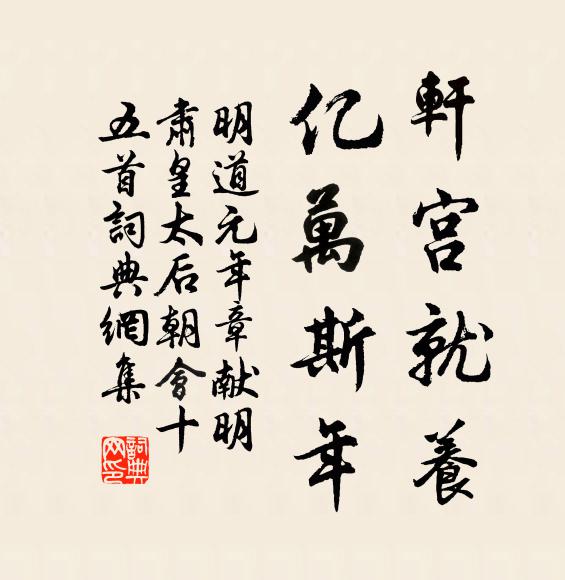 軒宮就養
亿萬斯年
明道元年章献明
肅皇太后朝會十
五首詞典網集
詞典
网印